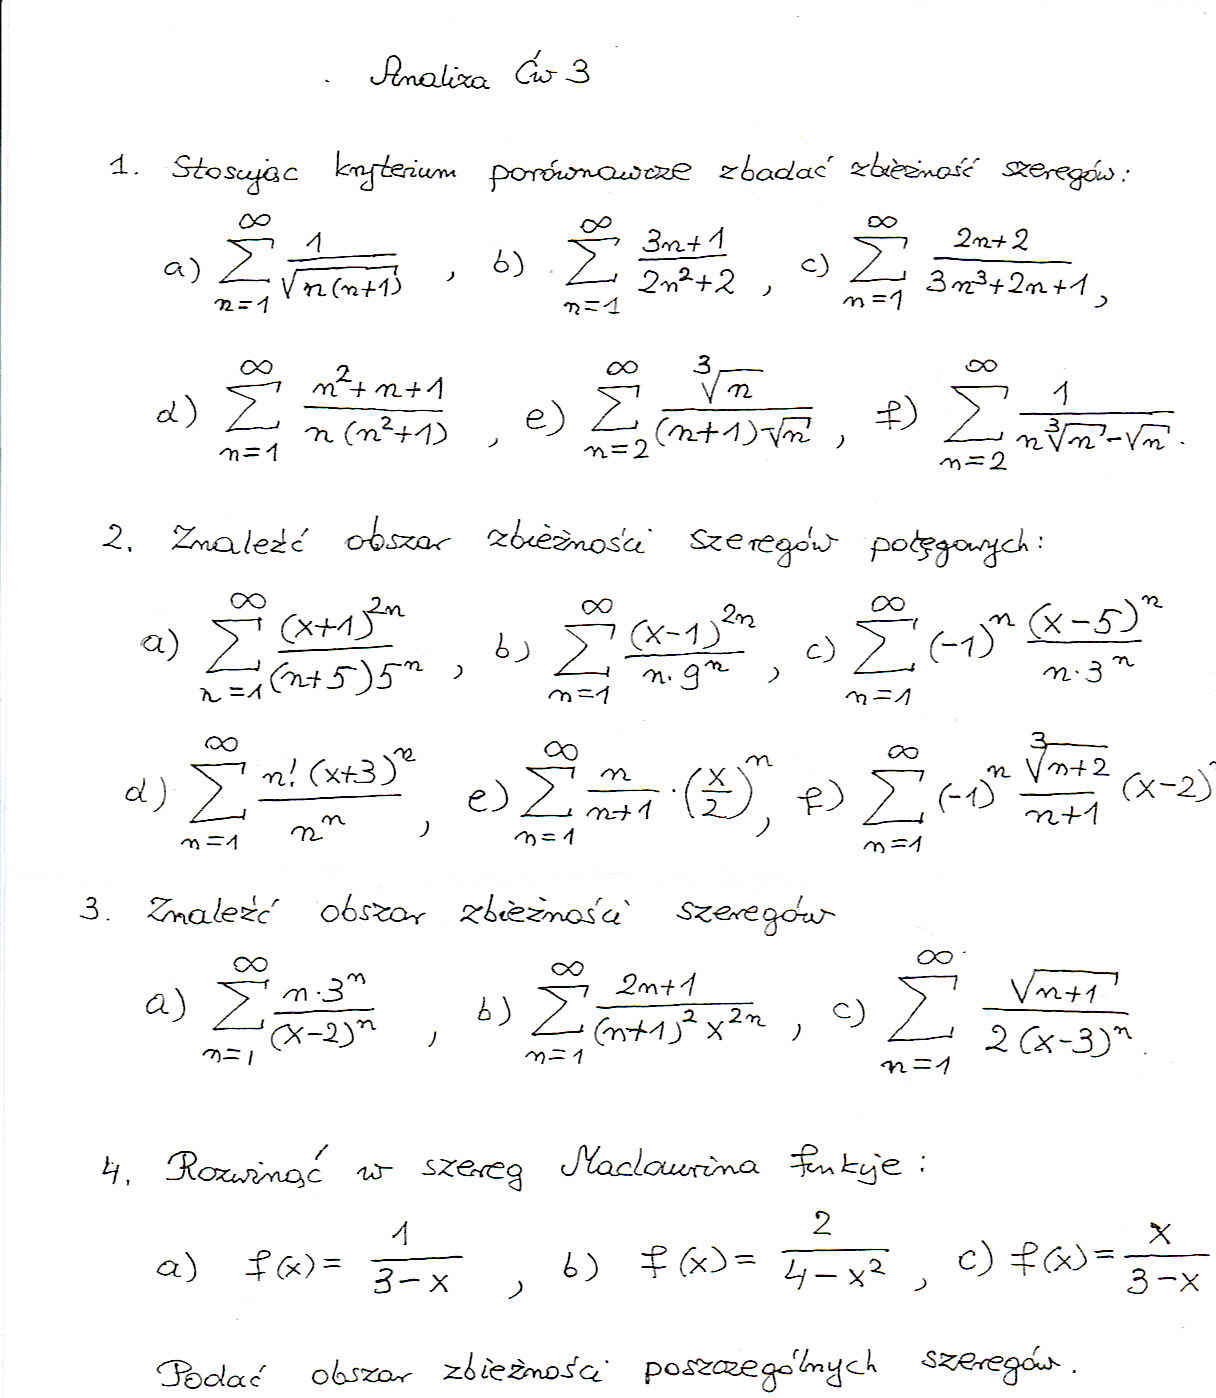 Analiza Ćw 3
1. Stosując kryterium porównawcze zbadać zbieżność szeregów:
a) \sum_{n=1}^{\infty} \frac{1}{\sqrt{n(n+1)}} , b) \sum_{n=1}^{\infty} \frac{3n+1}{2n^2+2} , c) \sum_{n=1}^{\infty} \frac{2n+2}{3n^3+2n+1} ,
d) \sum_{n=1}^{\infty} \frac{n^2+n+1}{n(n^2+1)} , e) \sum_{n=2}^{\infty} \frac{\sqrt[3]{n}}{(n+1)\sqrt{n}} , f) \sum_{n=2}^{\infty} \frac{1}{n\sqrt[3]{n}-\sqrt{n}} .
2. Znaleźć obszar zbieżności szeregów potęgowych:
a) \sum_{n=1}^{\infty} \frac{(x+1)^{2n}}{(n+5)5^n} , b) \sum_{n=1}^{\infty} \frac{(x-1)^{2n}}{n \cdot 9^n} , c) \sum_{n=1}^{\infty} (-1)^n \frac{(x-5)^n}{n \cdot 3^n}
d) \sum_{n=1}^{\infty} \frac{n!(x+3)^n}{n^n} , e) \sum_{n=1}^{\infty} \frac{n}{n+1} \cdot (\frac{x}{2})^n , f) \sum_{n=1}^{\infty} (-1)^n \frac{\sqrt[3]{n+2}}{n+1} (x-2)
3. Znaleźć obszar zbieżności szeregów
a) \sum_{n=1}^{\infty} \frac{n \cdot 3^n}{(x-2)^n} , b) \sum_{n=1}^{\infty} \frac{2n+1}{(n+1)^2 x^{2n}} , c) \sum_{n=1}^{\infty} \frac{\sqrt{n+1}}{2(x-3)^n} .
4. Rozwinąć w szereg Maclaurina funkcje:
a) f(x) = \frac{1}{3-x} , b) f(x) = \frac{2}{4-x^2} , c) f(x) = \frac{x}{3-x}
Podać obszar zbieżności poszczególnych szeregów.